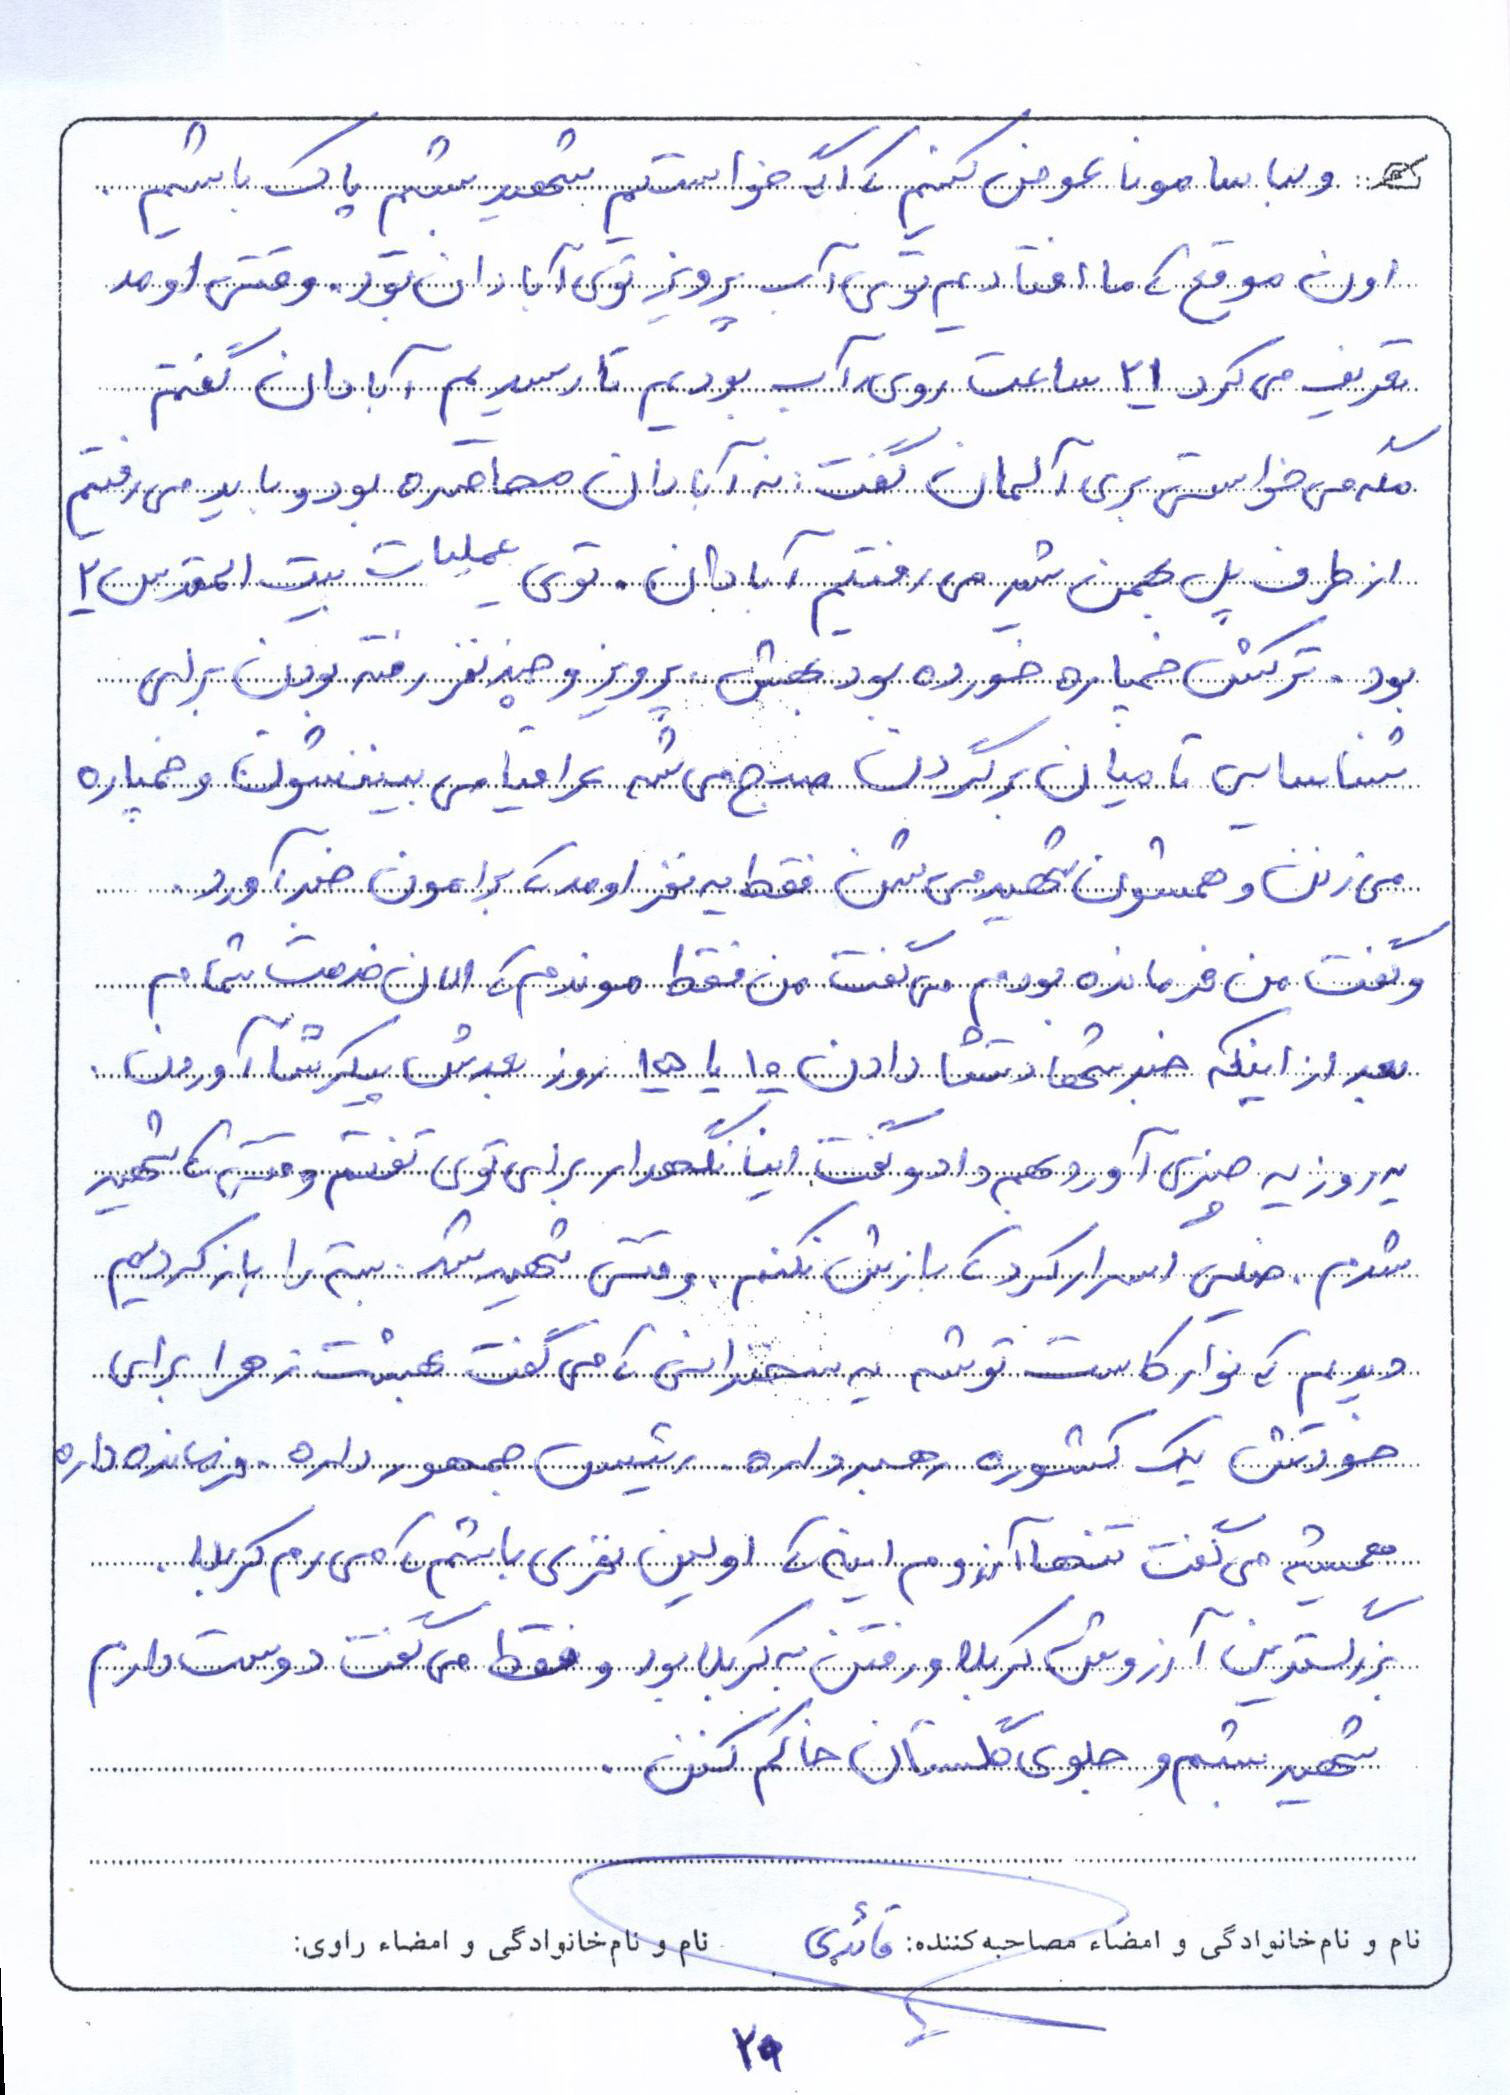 ولباسامونا عوض کنیم که اگه خواستیم شهید بشیم پاک باشیم.
اون موقع که ما افتادیم توی آب پرویز توی آبادان بود. وقتی اومد
تعریف می کرد ۲۱ ساعت روی آب بودیم تا رسیدیم آبادان گفتم
مگه می خواستی بری آلمان گفت: نه آبادان محاصره بود و باید می رفتیم
از طرف پل بهمن شیر می رفتیم آبادان. توی عملیات بیت المقدس ۲
بود. ترکش خمپاره خورده بود بهش. پرویز و چند نفر رفته بودن برای
شناسایی تا میان برگردن صبح می شه عراقیا می بیننشون و خمپاره
می زنن و همشون شهید می شن فقط یه نفر اومد که برامون خبر آورد.
و گفت من فرمانده بودم می گفت من فقط موندم که الان خدمت شمام
بعد از اینکه خبر شهادتشا دادن ۱۰ یا ۱۵ روز بعدش پیکرشا آوردن.
یه روز یه چیزی آورد بهم داد و گفت اینا نگهدار برای توی تفتم وقتی که شهید
شدم. خیلی اسرار کرد که بازش نکنم. وقتی شهید شد. بسته را باز کردیم
دیدیم که نوار کاست توشه یه سخنرانی که می گفت بهشت زهرا برای
خودش یک کشوره رهبر داره. رئیس جمهور داره. فرمانده داره
همیشه می گفت تنها آرزوم اینه که اولین نفری باشم که می رم کربلا.
بزرگترین آرزوش کربلا و رفتن به کربلا بود و فقط می گفت دوست دارم
شهید بشم و جلوی گلستان خاکم کنن.
نام و نام خانوادگی و امضاء مصاحبه کننده: قائدی نام و نام خانوادگی و امضاء راوی:
۲۹